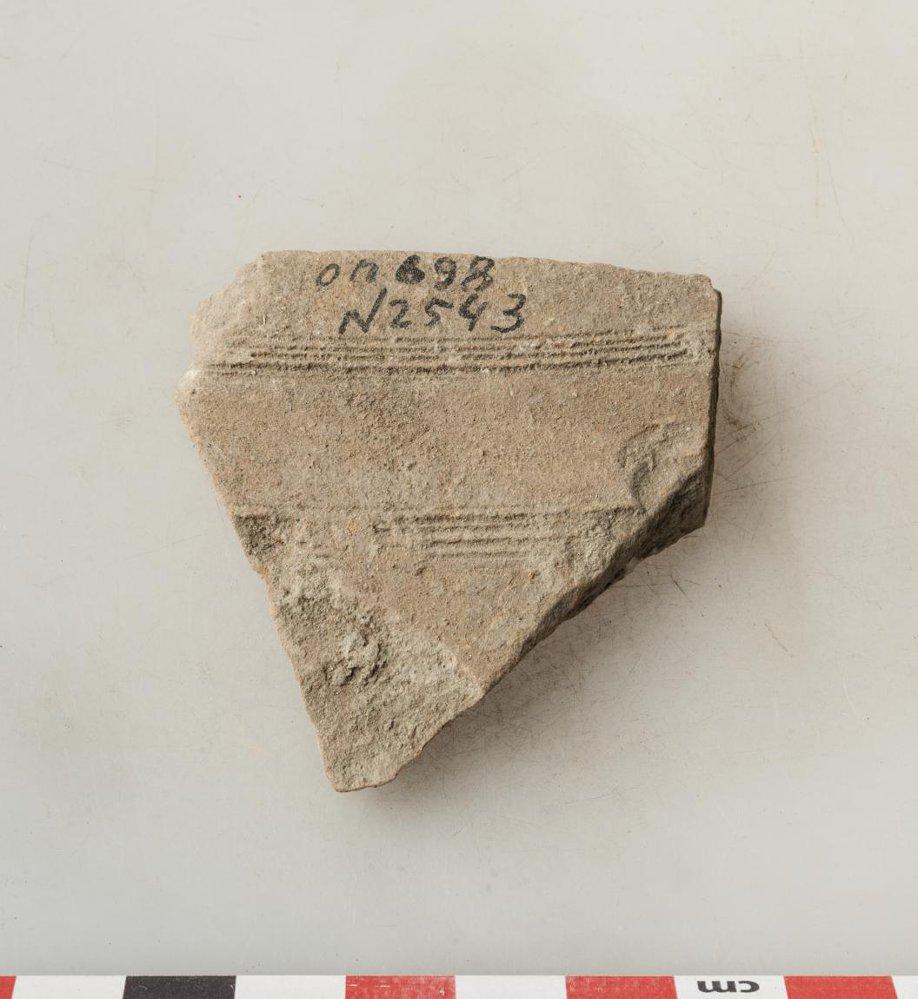 on 698
N2543
cm